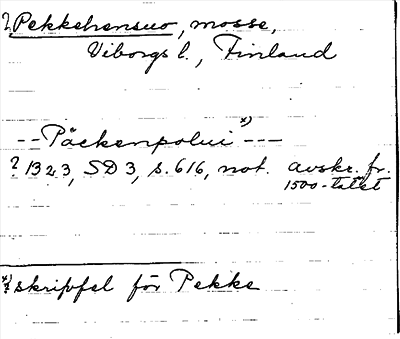 ? Pekkehensuo, mosse,
Viborgs l., Finland
-- Päckenpolui x) ---
? 1323, SD 3, s. 616, not. avskr. fr.
1500-talet
x) skrivfel för Pekke